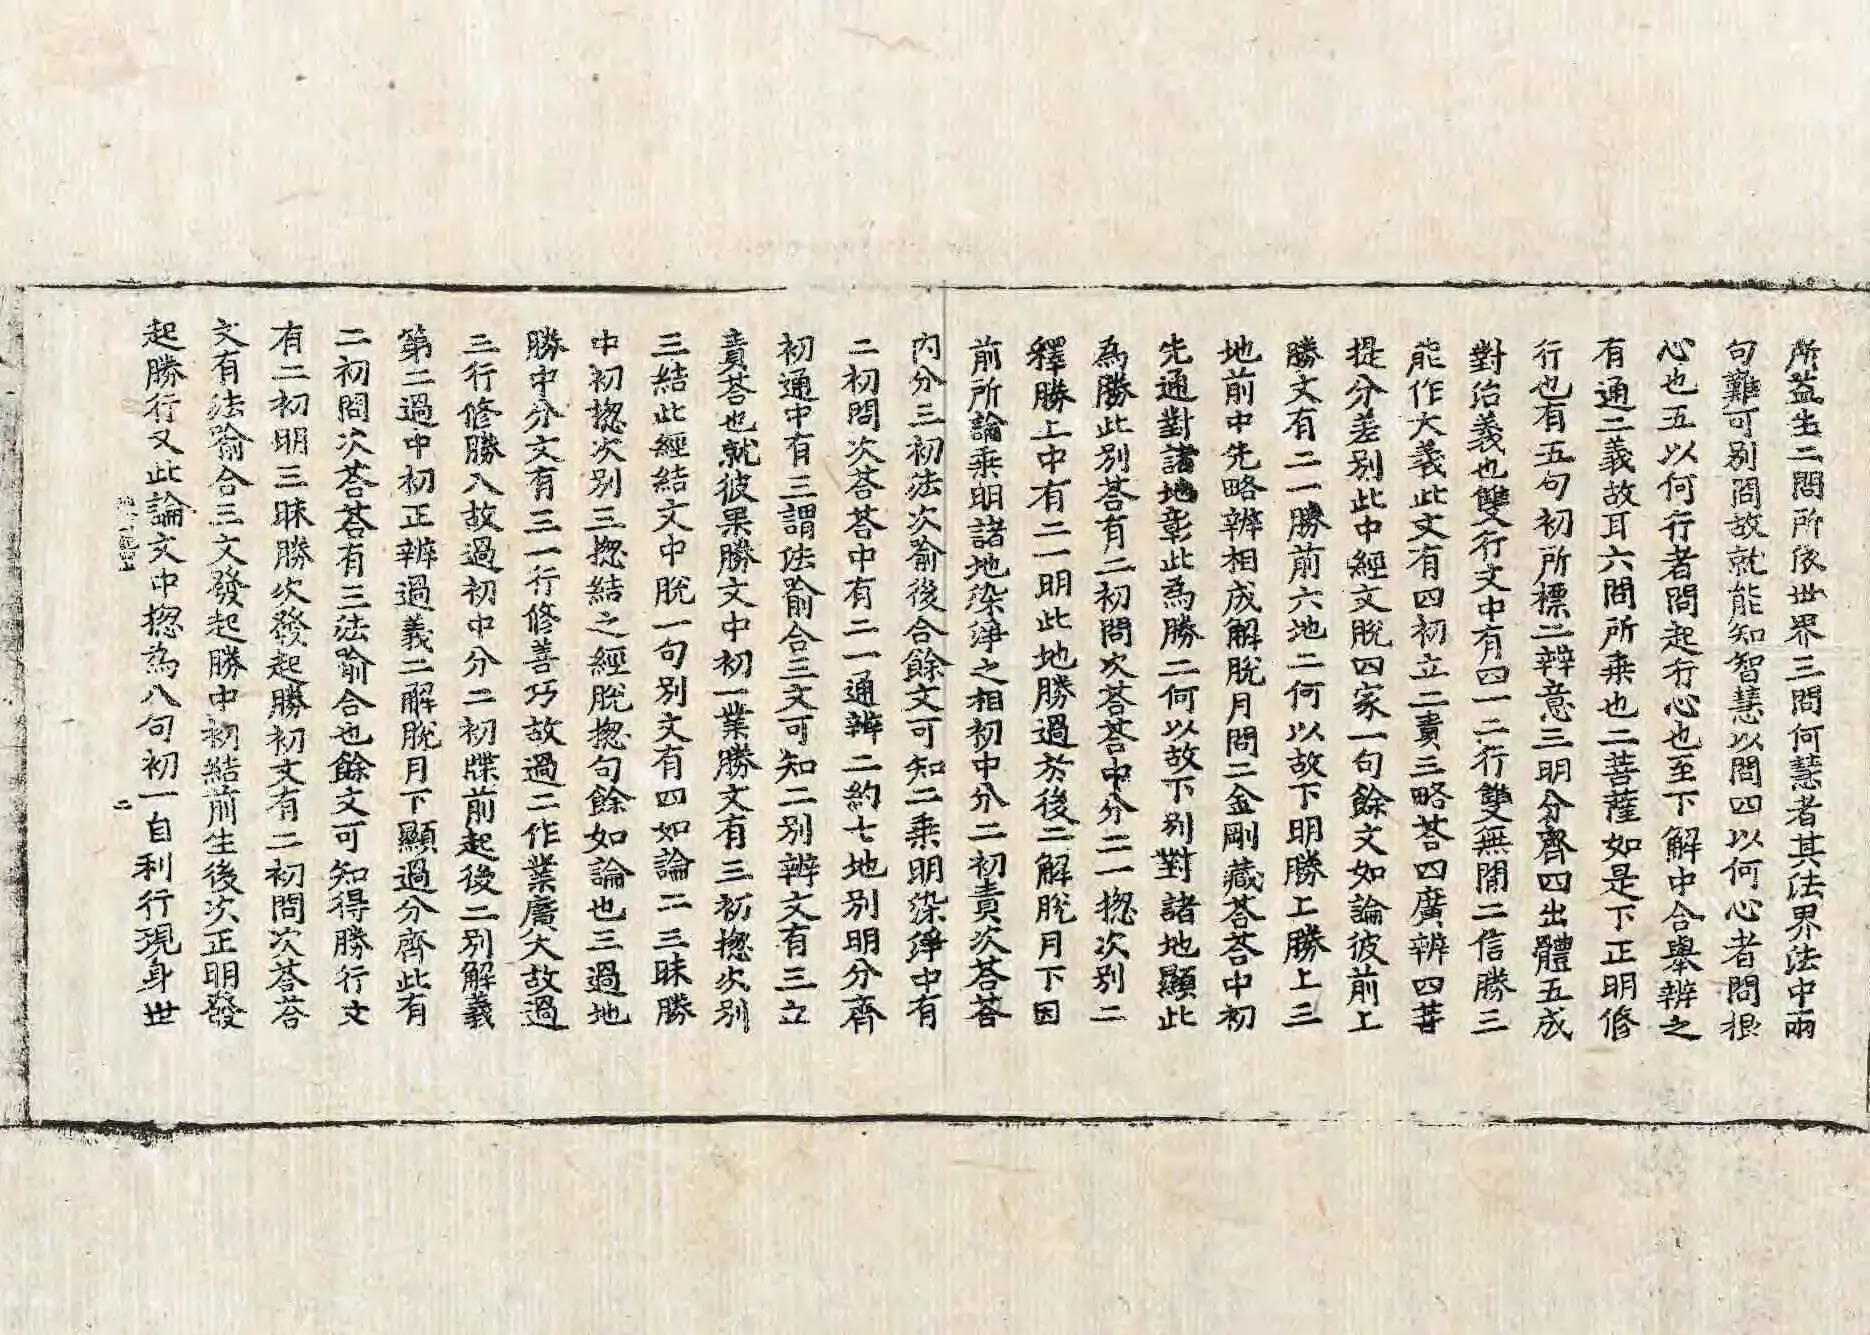 所益生二問所依世界三問何慧者其法界法中兩
句難可別問故就能知智慧以問四以何心者問根
心也五以何行者問起行心也至下解中合舉辨之
有通二義故耳六問所乘也二菩薩如是下正明修
行也有五句初所標二辨意三明分齊四出體五成
對治義也雙行文中有四一二行雙無閒二信勝三
能作大義此文有四初立二責三略荅四廣辨四菩
提分差別此中經文脫四家一句餘文如論彼前上
勝文有二一勝前六地二何以故下明勝上勝上三
地前中先略辨相成解脫月問二金剛藏荅荅中初
先通對諸地彰此為勝二何以故下別對諸地顯此
為勝此別荅有二初問次荅荅中分二一揔次別二
釋勝上中有二一明此地勝過於後二解脫月下因
前所論乘明諸地染淨之相初中分二初責次荅荅
內分三初法次喻後合餘文可知二乘明染淨中有
二初問次荅荅中有二一通辨二約七地別明分齊
初通中有三謂法喻合三文可知二別辨文有三立
責荅也就彼果勝文中初一業勝文有三初揔次別
三結此經結文中脫一句別文有四如論二三昧勝
中初揔次別三揔結之經脫揔句餘如論也三過地
勝中分文有三一行修善巧故過二作業廣大故過
三行修勝入故過初中分二初牒前起後二別解義
第二過中初正辨過義二解脫月下顯過分齊此有
二初問次荅荅有三法喻合也餘文可知得勝行文
有二初明三昧勝次發起勝初文有二初問次荅荅
文有法喻合三文發起勝中初結前生後次正明發
起勝行又此論文中揔為八句初一自利行現身世
二